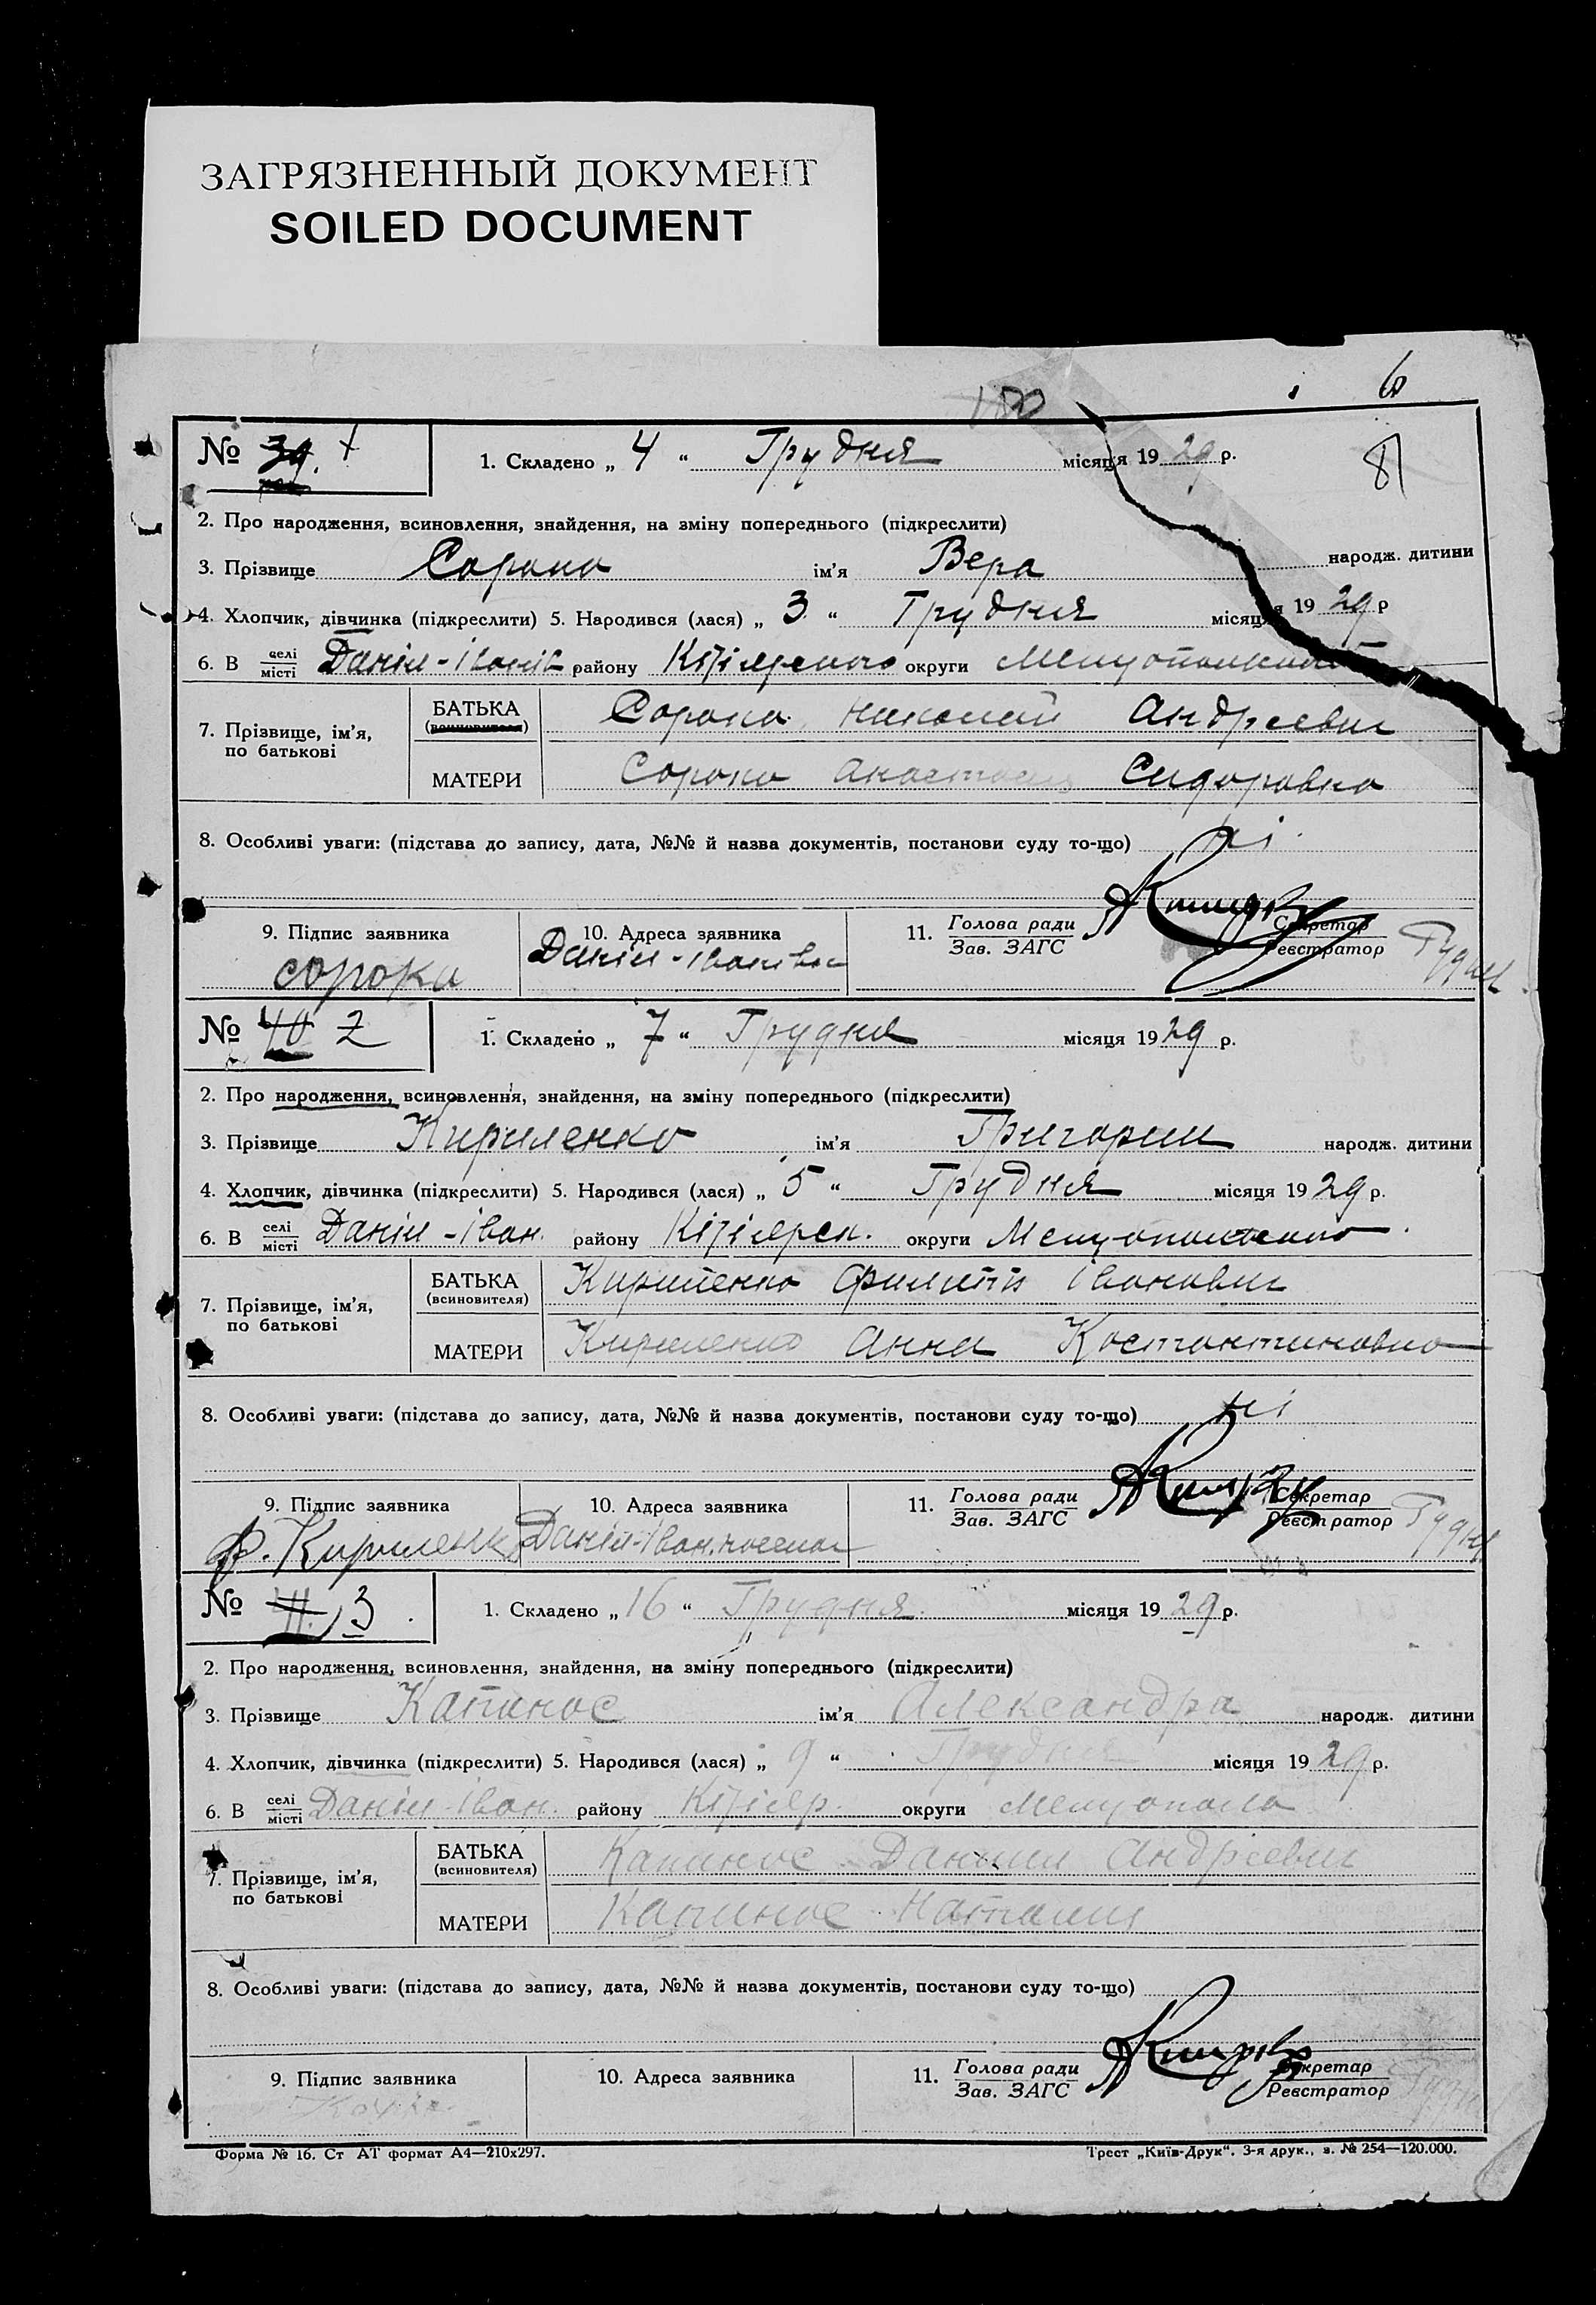 ЗАГРЯЗНЕННЫЙ ДОКУМЕНТ
SOILED DOCUMENT
6
№ 39. 1. Складено „ 4 “ Грудня місяця 19 29 р.
81
2. Про народження, всиновлення, знайдення, на зміну попереднього (підкреслити)
3. Прізвище Сорока ім'я Вера народж. дитини
4. Хлопчик, дівчинка (підкреслити) 5. Народився (лася) „ 3 “ Грудня місяця 19 29 р
6. В селі місті Даніл-Іванів району Кізіярского округи
7. Прізвище, ім'я, по батькові
БАТЬКА (всиновителя) Сорока Николай Андреевич
МАТЕРИ Сорока Анастасия Сидоровна
8. Особливі уваги: (підстава до запису, дата, №№ й назва документів, постанови суду то-що) ні
9. Підпис заявника 10. Адреса заявника 11. Голова ради Зав. ЗАГС Секретар Реєстратор
сорока Даніл-Іванівка
№ 40 2 1. Складено „ 7 “ Грудня місяця 19 29 р.
2. Про народження, всиновлення, знайдення, на зміну попереднього (підкреслити)
3. Прізвище Кириленко ім'я Григорий народж. дитини
4. Хлопчик, дівчинка (підкреслити) 5. Народився (лася) „ 5 “ Грудня місяця 19 29 р.
6. В селі місті Даніл-Іван. району Кізіярск. округи Мелітопольского
7. Прізвище, ім'я, по батькові
БАТЬКА (всиновителя) Кириленко Филипп Іванович
МАТЕРИ Кириленко Анна Костантиновна
8. Особливі уваги: (підстава до запису, дата, №№ й назва документів, постанови суду то-що) ні
9. Підпис заявника 10. Адреса заявника 11. Голова ради Зав. ЗАГС Секретар Реєстратор
Ф. Кириленк Даніл-Іван.
№ 41 3 1. Складено „ 16 “ Грудня місяця 19 29 р.
2. Про народження, всиновлення, знайдення, на зміну попереднього (підкреслити)
3. Прізвище Капинос ім'я Александра народж. дитини
4. Хлопчик, дівчинка (підкреслити) 5. Народився (лася) „ 9 “ Грудня місяця 19 29 р.
6. В селі місті Даніл-Іван. району Кізіяр. округи
7. Прізвище, ім'я, по батькові
БАТЬКА (всиновителя) Капинос Данил Андреевич
МАТЕРИ Капинос Наталия
8. Особливі уваги: (підстава до запису, дата, №№ й назва документів, постанови суду то-що)
9. Підпис заявника 10. Адреса заявника 11. Голова ради Зав. ЗАГС Секретар Реєстратор
Форма № 16. Ст АТ формат А4—210х297. Трест „Київ-Друк“. 3-я друк., з. № 254—120.000.